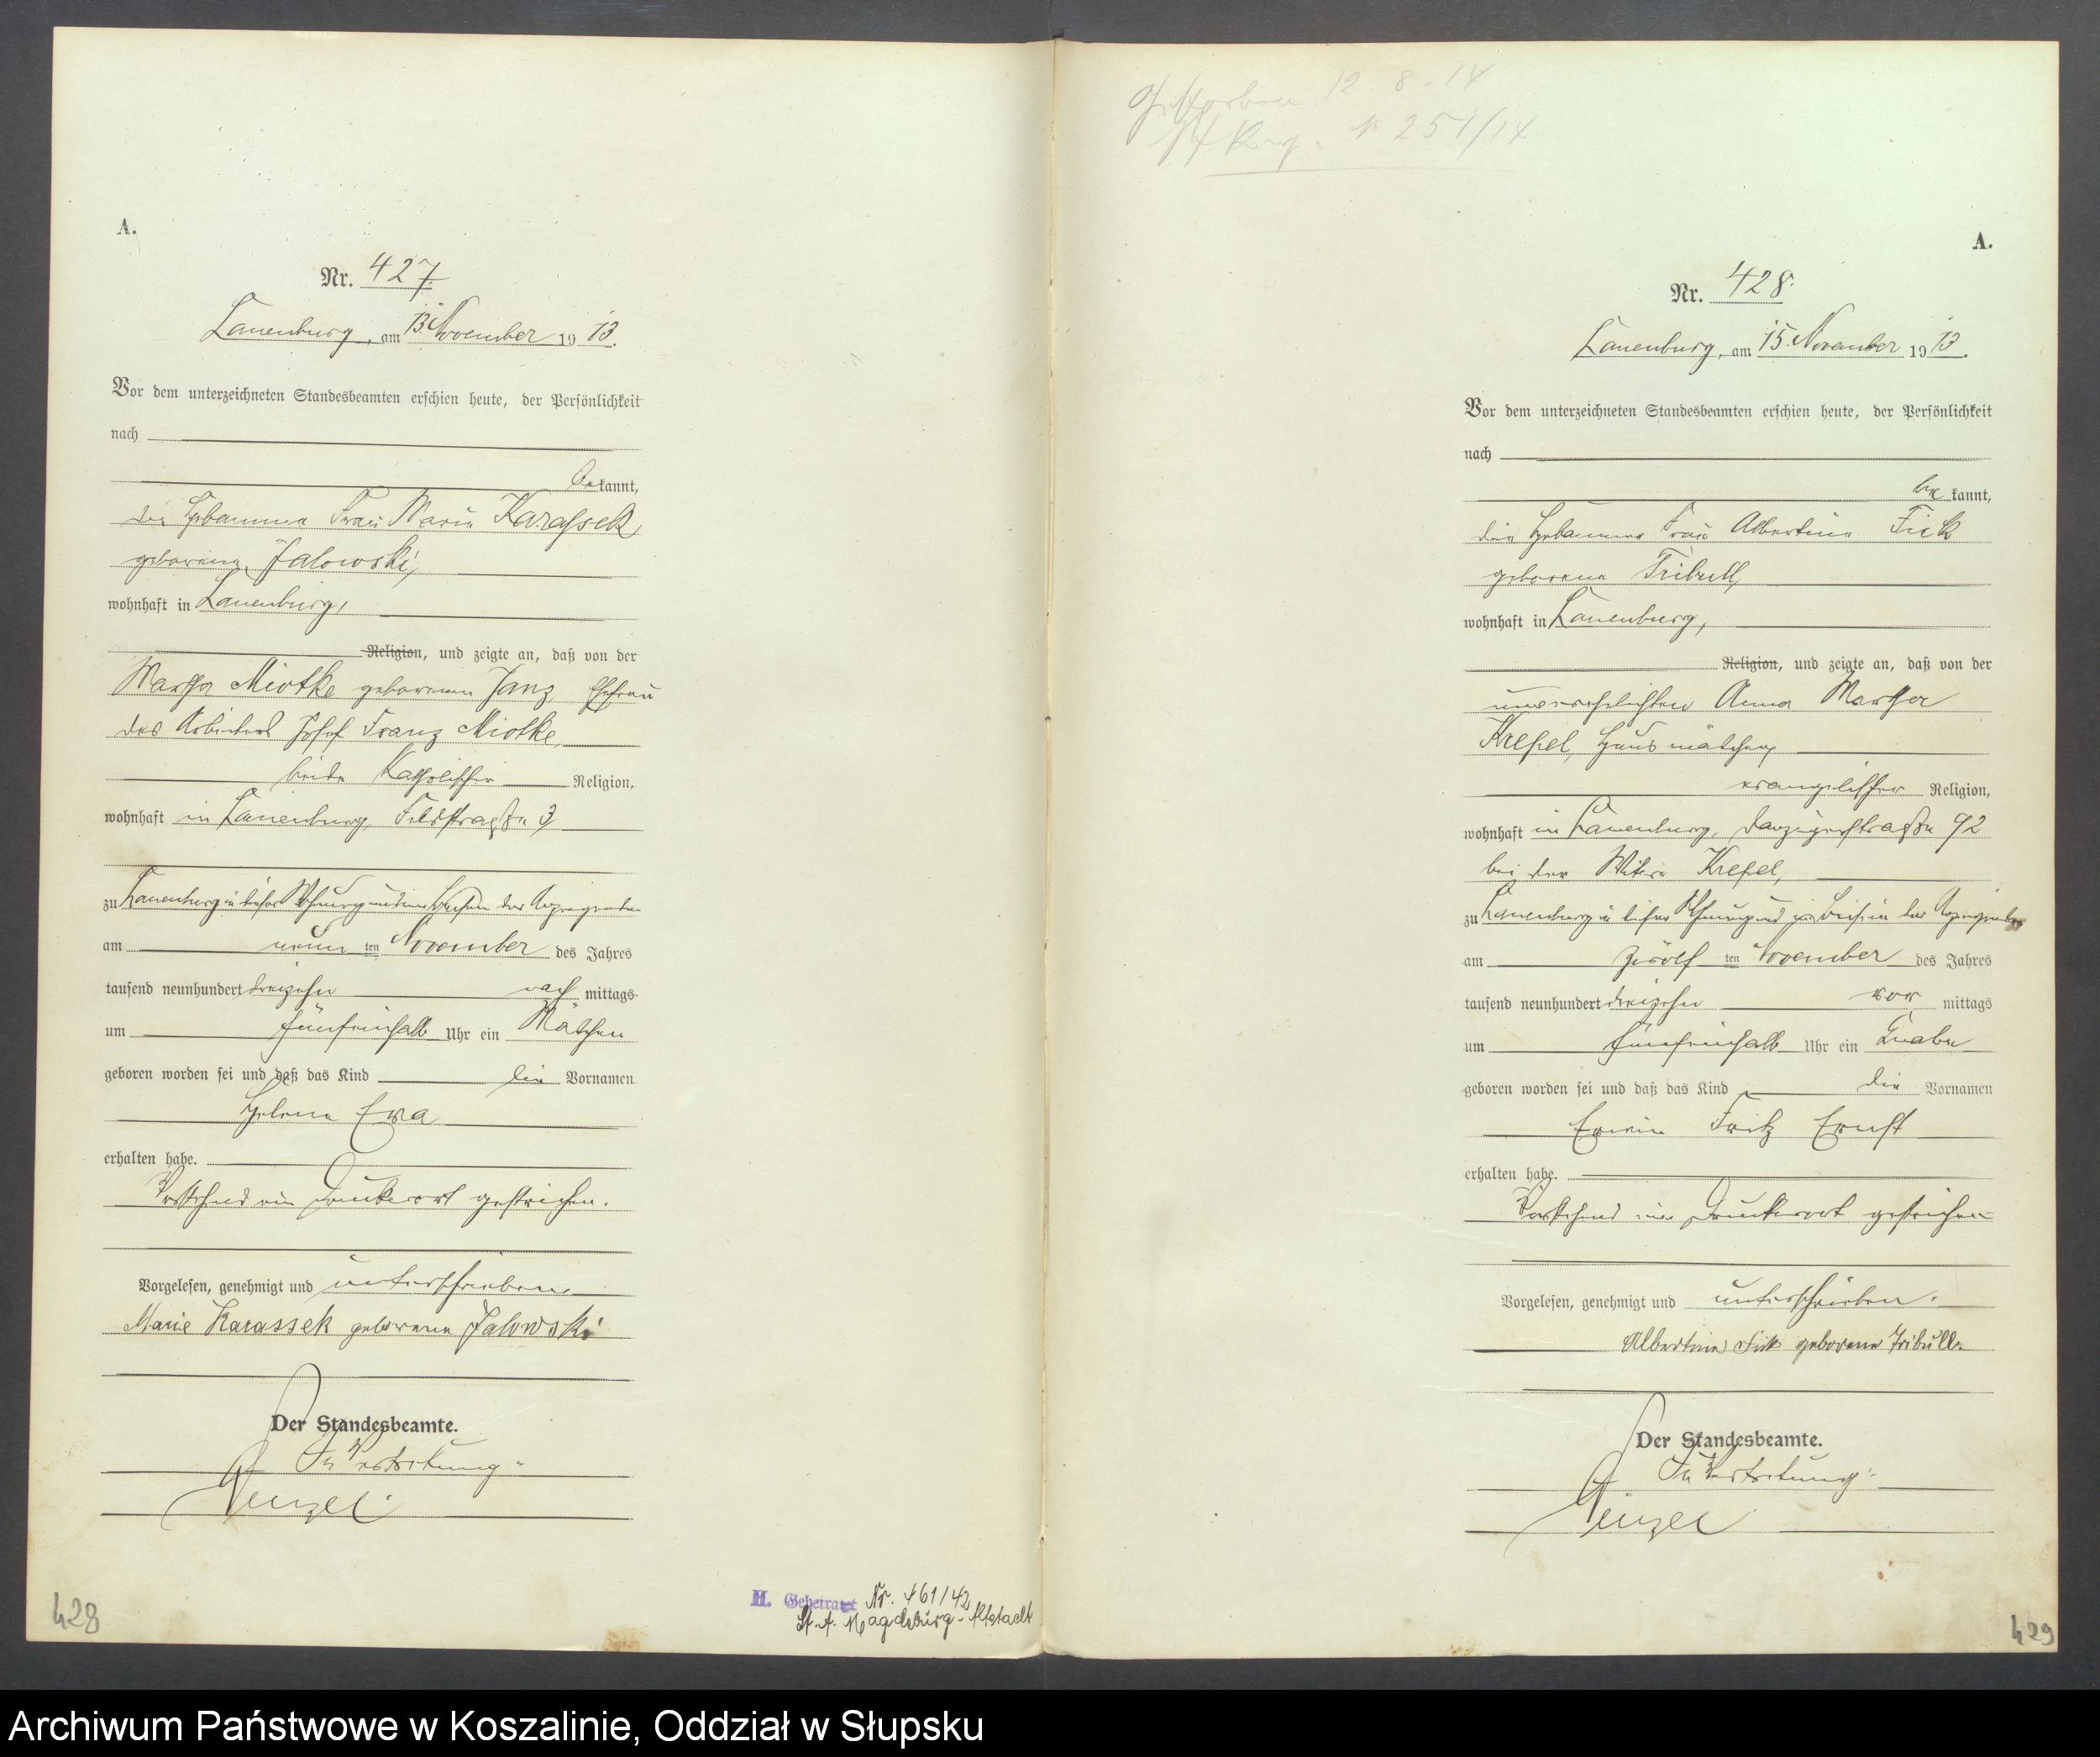 A.
Nr. 427.
Lauenburg, am 13. November 1913.
Vor dem unterzeichneten Standesbeamten erschien heute, der Persönlichkeit
nach
bekannt,
die Hebamme Frau Marie Karassek
geborene Jalowski,
wohnhaft in Lauenburg,
Religion, und zeigte an, daß von der
Martha Miotke geborenen Janz, Ehefrau
des Arbeiters Josef Franz Miotke,
beide katholischer Religion,
wohnhaft in Lauenburg, Feldstraße 3,
zu Lauenburg in dieser Wohnung und im Beisein der Anzeigenden
am neunten November des Jahres
tausend neunhundert dreizehn nachmittags
um fünfeinhalb Uhr ein Mädchen
geboren worden sei und daß das Kind die Vornamen
Helene Eva
erhalten habe.
Vorstehend ein Druckwort gestrichen.
Vorgelesen, genehmigt und unterschrieben
Marie Karassek geborene Jalowski
Der Standesbeamte.
In Vertretung.
428
H. Geheiratet Nr. 461/42
St. A. Magdeburg-Altstadt
Gestorben 12. 8. 14
251/14
A.
Nr. 428.
Lauenburg, am 15. November 1913.
Vor dem unterzeichneten Standesbeamten erschien heute, der Persönlichkeit
nach
bekannt,
die Hebamme Frau Albertine Fick
geborene Tribull,
wohnhaft in Lauenburg,
Religion, und zeigte an, daß von der
unverehelichten Anna Martha
Kreßel, Hausmädchen,
evangelischer Religion,
wohnhaft in Lauenburg, Danzigerstraße 92
bei der Witwe Kreßel,
zu Lauenburg in dieser Wohnung und im Beisein der Anzeigenden
am zwölften November des Jahres
tausend neunhundert dreizehn vormittags
um fünfeinhalb Uhr ein Knabe
geboren worden sei und daß das Kind die Vornamen
Erwin Fritz Ernst
erhalten habe.
Vorstehend ein Druckwort gestrichen
Vorgelesen, genehmigt und unterschrieben.
Albertine Fick geborene Tribull.
Der Standesbeamte.
In Vertretung.
429
Archiwum Państwowe w Koszalinie, Oddział w Słupsku